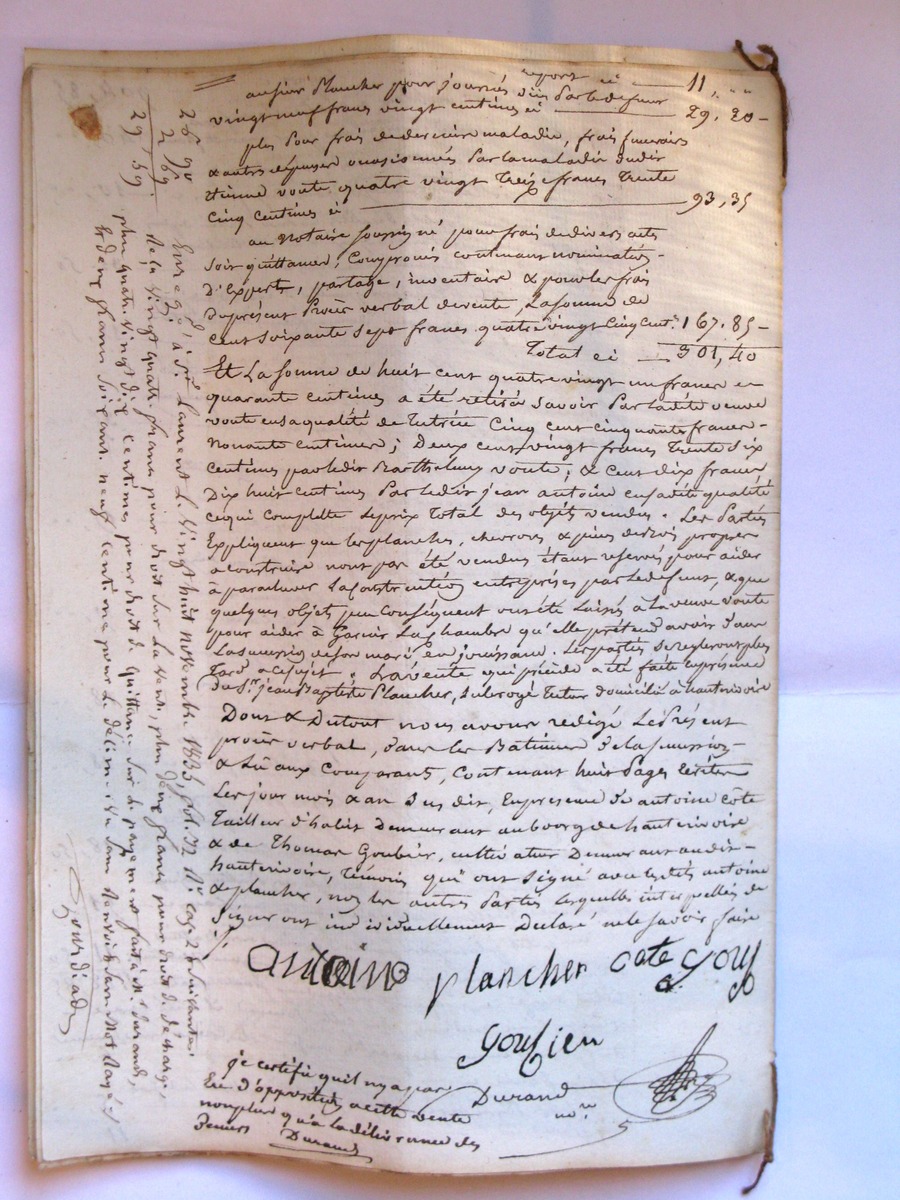 report ci 11, " "
au sieur Plancher pour journées dûës Par le defunt
vingt neuf francs vingt centimes ci 29, 20
plus Pour frais de derniere maladie, frais funeraires
& autres dépenses occasionnées Par la maladie dudit
Etienne voute quatre vingt treize francs trente
Cinq Centimes ci 93, 35
au Notaire soussigné pour frais de divers actes
soit quittances, Compromis contenant nomination
d'Experts, partage, inventaire & pour les frais
Du présent Procès verbal de vente, La somme de
Cent soixante Sept francs quatre vingt Cinq Cent.s 167. 85
Total ci 301, 40
Et La somme de huit cent quatre vingt un francs et
quarante centimes a été retirée Savoir Par ladite veuve
voute en sa qualité de tutrice Cinq cent cinquante francs
Nonante centimes; Deux cent vingt francs trente Six
Centimes par ledit Barthelemy voute; & Cent dix francs
Dix huit centimes Par ledit jean antoine en sadite qualité
ce qui Complette le prix Total des objets vendus. Les Parties
Expliquent que les planches, chevrons & pièces de bois propres
a construire n'ont pas été vendus étant reservés pour aider
à parachever la construction entreprise par le defunt, & que
quelques objets peu Conséquents ont été laissés à la veuve voute
pour aider à Garnir La chambre qu'elle prétend avoir dans
La succession de son mari En jouissance. Les parties se regleront plus
Tard a ce sujet. La vente qui précède a été faite En présence
du S.r jean Baptiste Plancher, subrogé tuteur domicilié à hauterivoire
Dont & Du tout nous avons redigé Le Présent
procès verbal, dans les Batimens de la succession
& Lu aux Comparants, Contenant huit Pages Ecrites
Les jour mois & an Sus dit, En presence de antoine Côte
Tailleur d'habits Demeurant au bourg de hauterivoire
& de Thomas Goubier, cultivateur Demeurant audit
hauterivoire, témoins qui ont Signé avec lesdits antoine
& plancher, non les autres Parties lesquelles interpellées de
Signer ont individuellement Declaré ne le savoir faire
antoine plancher cote
Durand
n.re
je certifie qu'il n'y a pas
Eu d'opposition a cette vente
non plus qu'à la délivrance des
deniers Durand
26 90
2 69
29 59
Enregé à St Laurent L. vingt huit Novembre 1835, fol. 72 R.o case 2 & suivantes
Reçu vingt quatre francs pour droit sur la vente, plus deux francs pour droit de décharge,
plus quatre vingt dix centimes pour droit de quittance sur le payement fait à M.e Durand,
Et deux francs soixante neuf centimes pour le décime